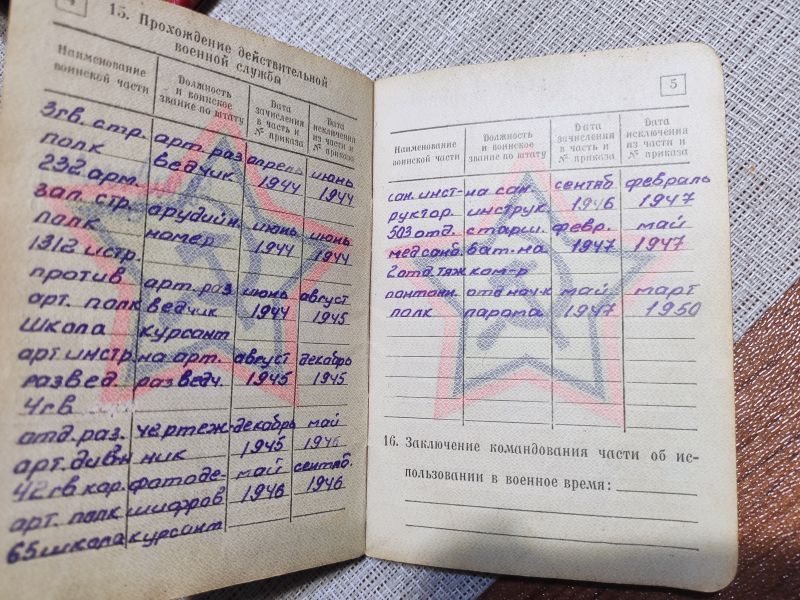 4
15. Прохождение действительной
военной службы
Наименование воинской части
Должность и воинское звание по штату
Дата зачисления в часть и № приказа
Дата исключения из части и № приказа
3гв. стр. арт. раз апрель июнь
полк ведчик 1944 1944
232 арт.
зап. стр. арудийн. июнь июнь
полк номер 1944 1944
1312 истр.
против арт. раз июнь август
арт. полк ведчик 1944 1945
Школа курсант
арт. инстр. на арт. август декабрь
развед. разведч. 1945 1945
4гв.
отд. раз. чертеж- декабрь май
арт. дивн ник 1945 1946
42гв кор. фотоде- май сентяб.
арт. полк шифров 1946 1946
65 школа курсант
5
Наименование воинской части
Должность и воинское звание по штату
Дата зачисления в часть и № приказа
Дата исключения из части и № приказа
сан. инст- на сан. сентяб февраль
руктор. инструк. 1946 1947
503 отд. старш. февр. май
медсанб. бат-на 1947 1947
2 отд. тяж ком-р
понтонн. отд-ния к май март
полк парома 1947 1950
16. Заключение командования части об ис-
пользовании в военное время: